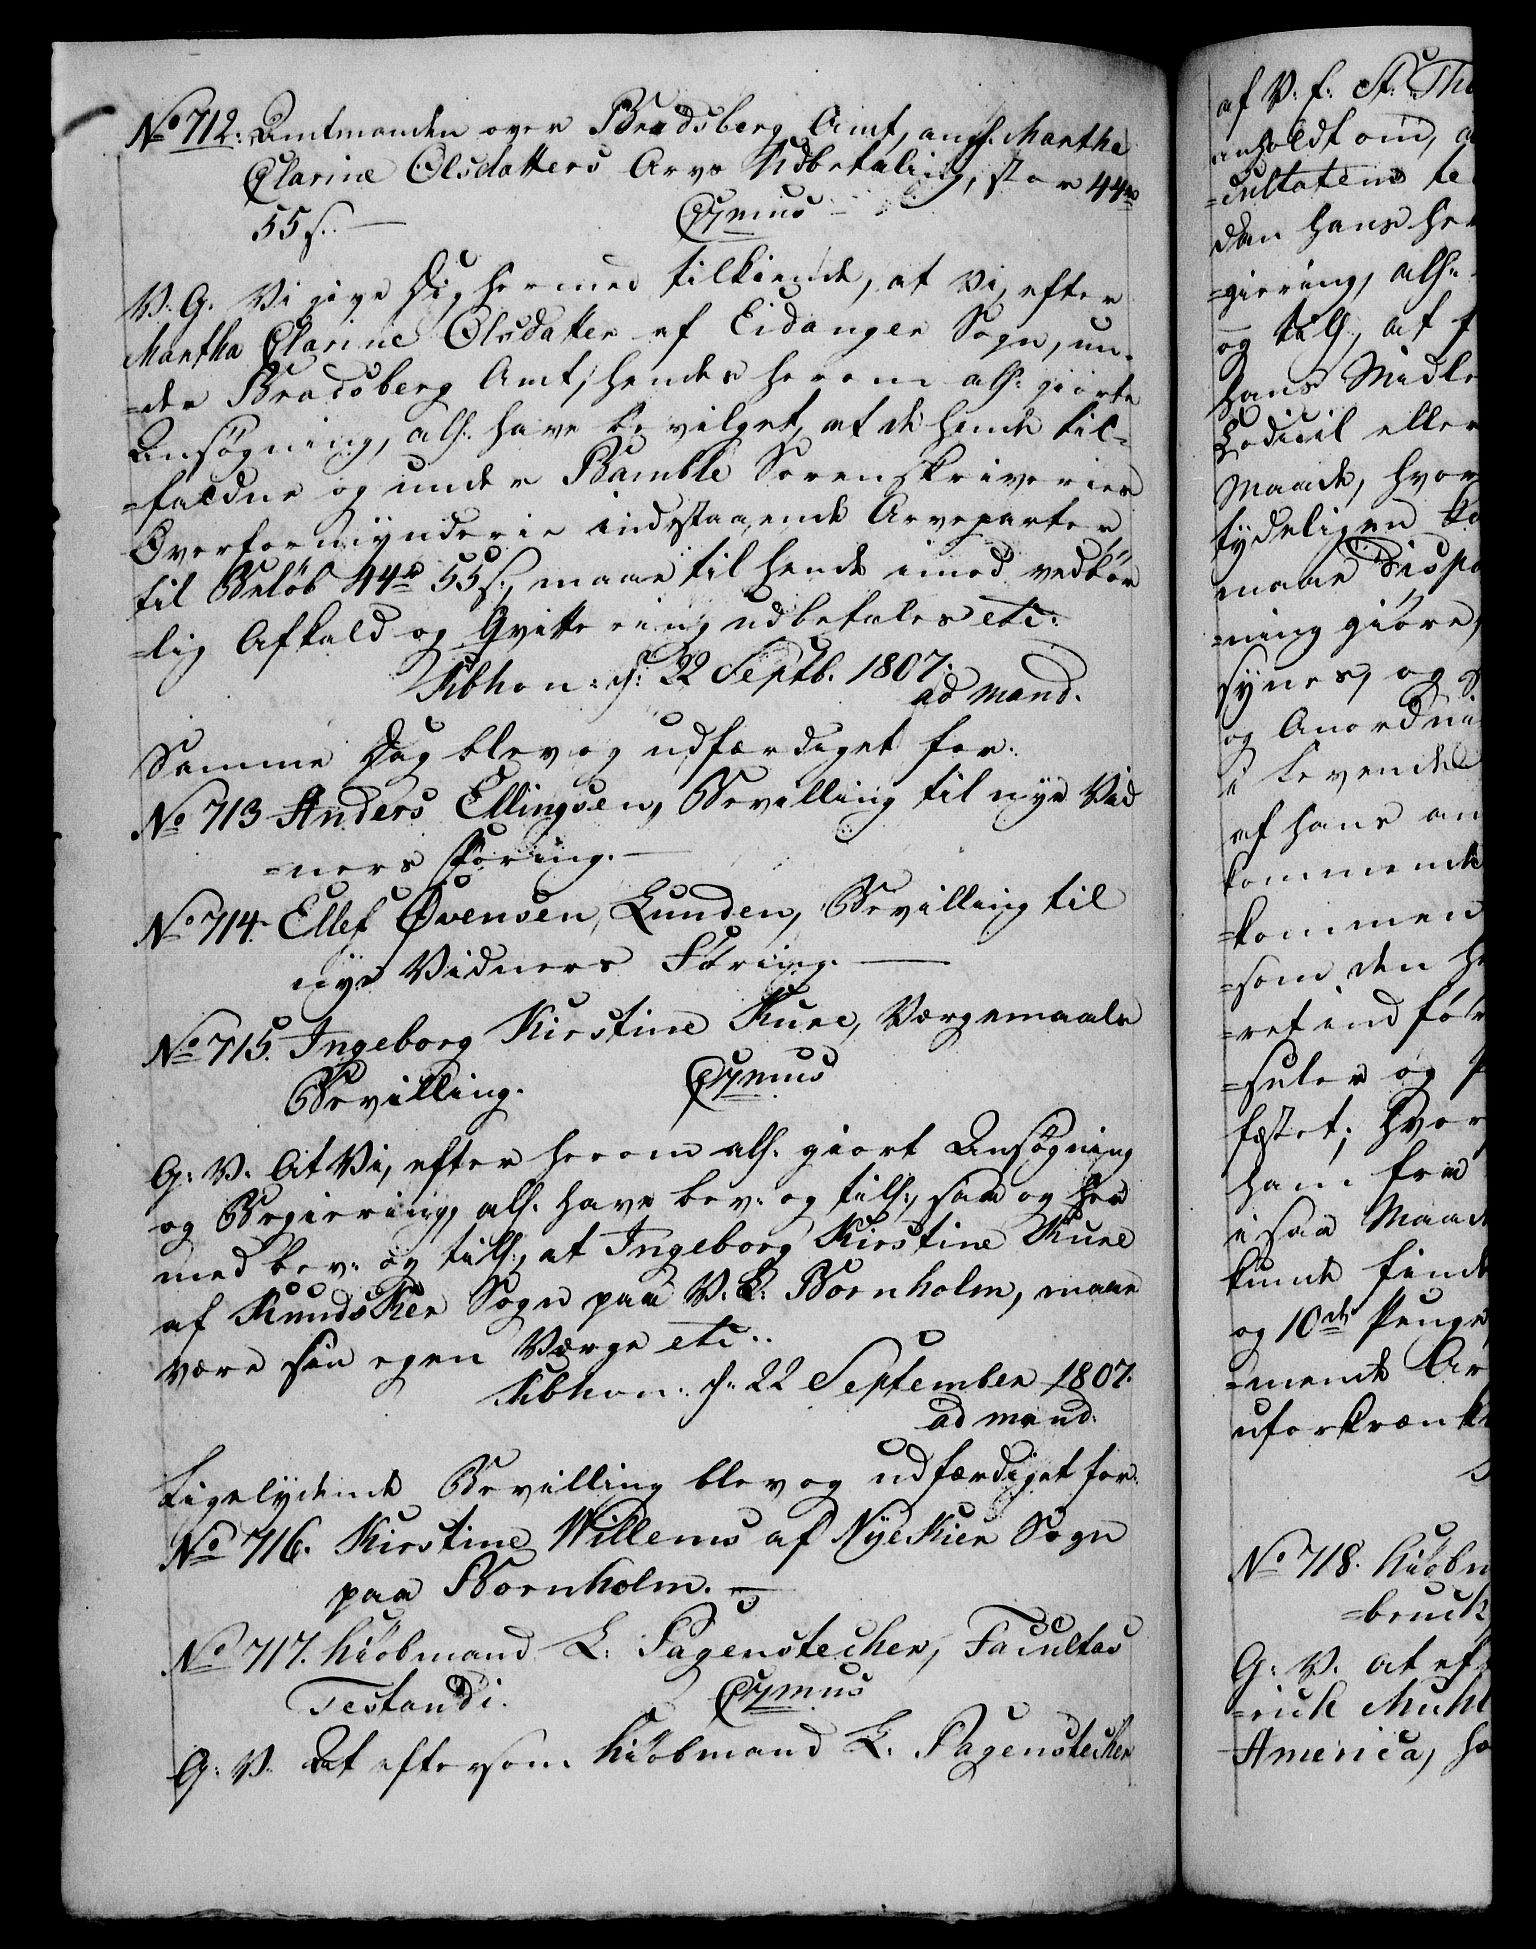 No 712. Amtmanden over Bradsberg Amt, anl. Martha
Clarine Olsdatters Arvs Udbetaling, stor 44rd
55 s. —
C7mus
V. G. Vi give Dig hermed tilkiende, at Vi, efter
Martha Clarine Olsdatter af Eidanger Sogn, un-
=der Bradsberg Amt, hendes herom allr: giorte
Ansøgning, allr. have bevilget, at de hende til-
=faldne og under Bamble Sorenskriveries
Overformynderie indestaaende Arveparter,
til Beløb 44rd 55 s:, maae til hende imod vedbør
=lig Afkald og Qvittering udbetales etc:
Kbhvn: d: 22 Septb. 1807.
ad mand.
Samme Dag blev og udfærdiget for:
No 713 Anders Ellingsen, Bevilling til nye Vid
=ners Føring. —
No 714. Ellef Øvensen Lunden, Bevilling til
nye Vidners Føring. —
No 715. Ingeborg Kirstine Kure, Værgemaals
Bevilling.
C7mus
G: V. At Vi, efter herom allr. giort Ansøgning
og Begiering, allr. have bev: og tilladt:, saa og her
med bev: og till:, at Ingeborg Kirstine Kure
af Knudsker Sogn paa V. L: Bornholm, maae
være sin egen Værge etc..
Kbhvn: d: 22 September 1807.
ad mand.
Ligelydende Bevilling blev og udfærdiget for:
No 716. Kirstine Willems af NyeKier Sogn
paa Bornholm. —
No 717. Kiøbmand L: Pagenstecher, Facultas
Testandi.
C7mus
G: V. At eftersom Kiøbmand L. Pagenstecher
af V: f: St: Tho
anholdt om, a
=cultatem te
dan hans he
=giering, allr:
og till, at
hans Midle
Codicil eller
Maade, hvor
tydeligen
maae Dispo
=ning giøre,
synes, og
og Anordni
i levende
af hans an
kommende
=kommen
=som den
=ret indfør
=suler og
fæstet; hvor
ham fra
i saa Maade
kunde finde
og 10de Penge
=mende Ar
uforkrænk
No 718. Kiøbm
=bruck
G: V. at ef
=rick Muhl
America, ha